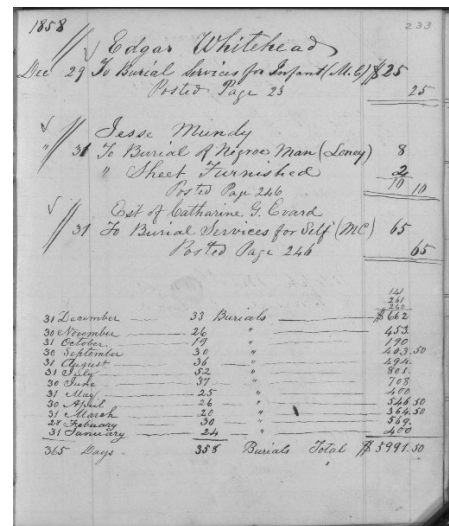 1858 233
Edgar Whitehead
Dec 29 To Burial Services for Infant (M.C) $25
Posted Page 23 25
Jesse Mundy
" 31 To Burial of Negroe Man (Loney) 8
" Sheet Furnished 2
Posted Page 246 10 10
Est of Catharine G. Evard
" 31 To Burial Services for Self (MC) 65
Posted Page 246 65
141
261
260
31 December 33 Burials $662
30 November 26 " 453.
31 October 19 " 190
30 September 30 " 403.50
31 August 36 " 494.
31 July 52 " 801.
30 June 37 " 708
31 May 25 " 400
30 April 26 " 546.50
31 March 20 " 364.50
28 Febuary 30 " 569.
31 January 24 " 400
365 Days 358 Burials Total $5991.50